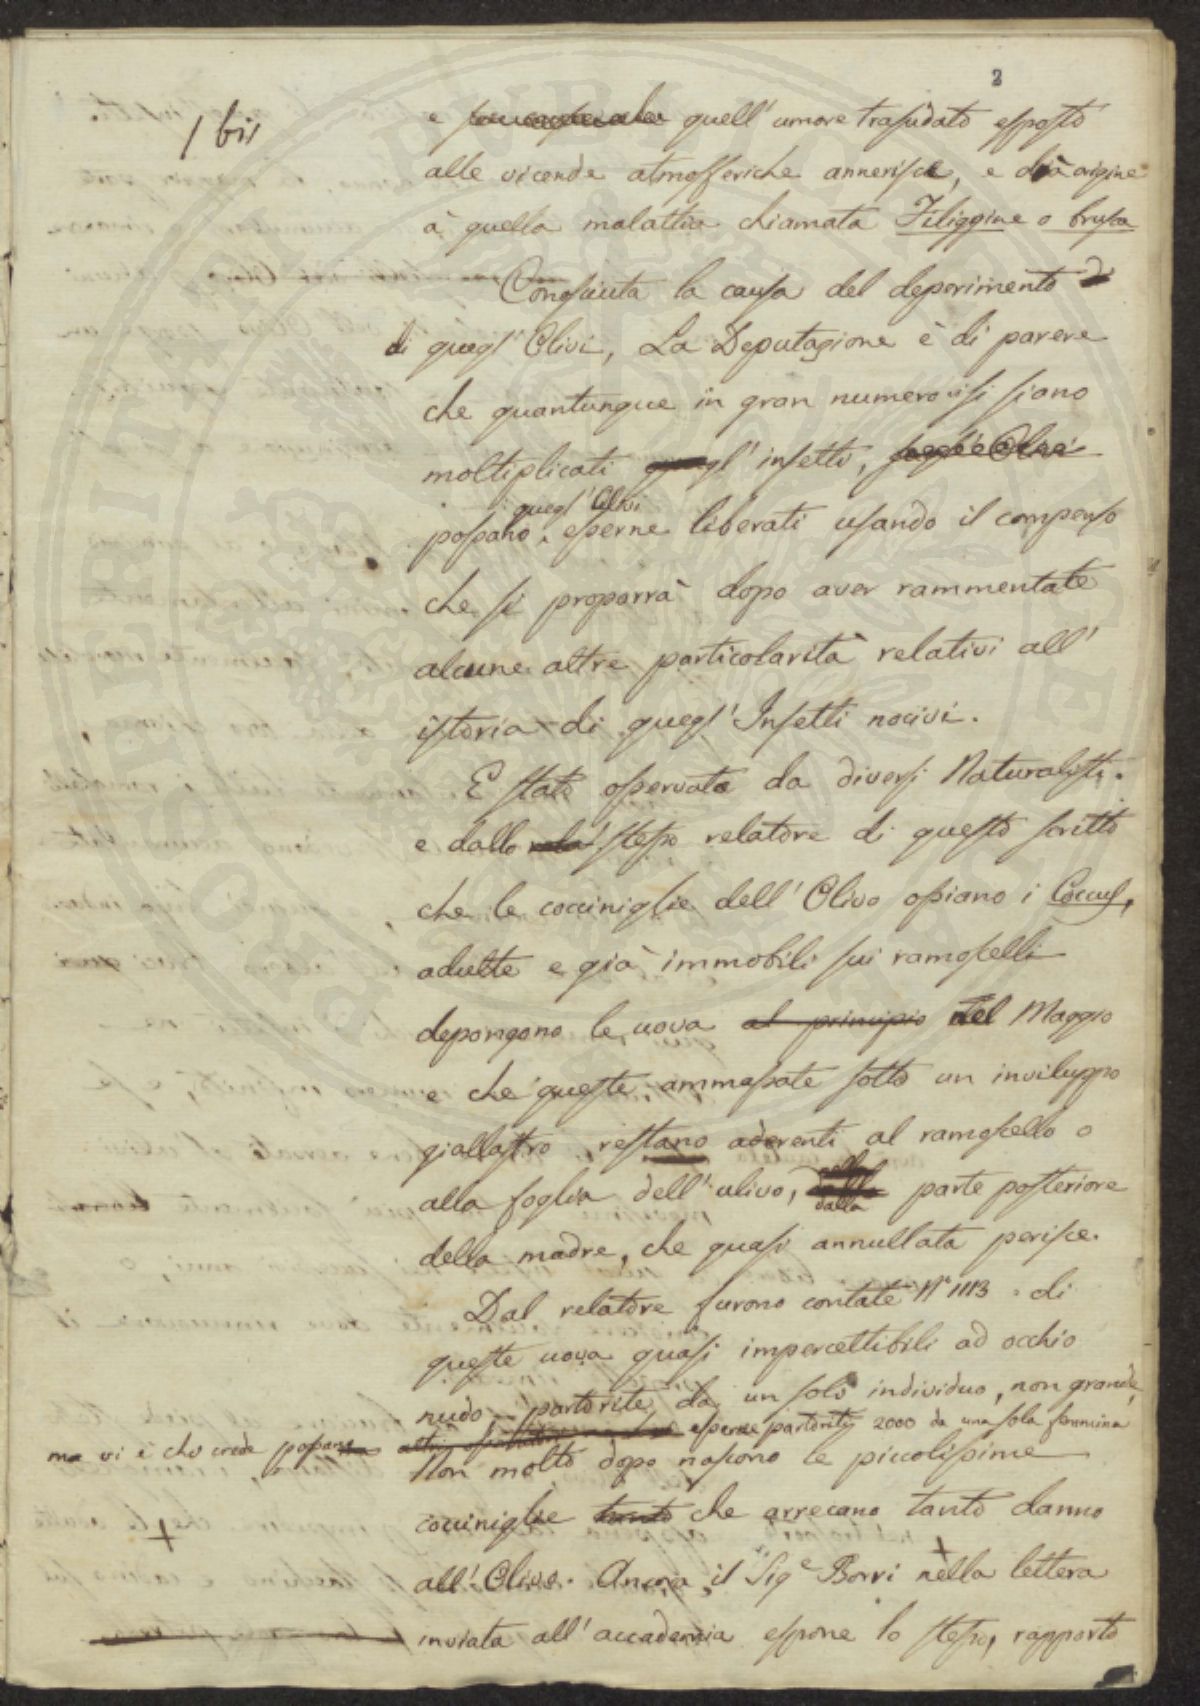 2
1 bis
e quell' umore trasudato esposto
alle vicende atmosferiche annerisce, e dà origine
à quella malattia chiamata Filiggine o brusca
Conosciuta la causa del deperimento di
di quegl' Olivi, La Deputazione è di parere
che quantunque in gran numero si siano
moltiplicati quegl' insetti, quegl' Olivi
possano esserne liberati usando il compenso
che si proporrà dopo aver rammentate
alcune altre particolarità relativi all'
istoria di quegl' Insetti nocivi.
E stato osservato da diversi Naturalisti.
e dallo stesso relatore di questo scritto
che le cocciniglie dell' Olivo ossiano i Coccus,
adulte e già immobili sui ramoscelli
depongono le uova al principio del Maggio
e che queste, ammassate sotto un inviluppo
giallastro restano aderenti al ramoscello o
alla foglia dell' ulivo, dalla parte posteriore
della madre, che quasi annullata perisce.
Dal relatore furono contate N° 1113 di
queste uova quasi impercettibili ad occhio
nudo, partorite da un solo individuo, non grande,
ma vi è chi crede possano esserne partorite 2000 da una sola femmina
Non molto dopo nascono le piccolissime
cocciniglie tanto che arrecano tanto danno
all' Olivo. Ancora il Sig.e Borri nella lettera
inviata all' accademia espone lo stesso, rapporto